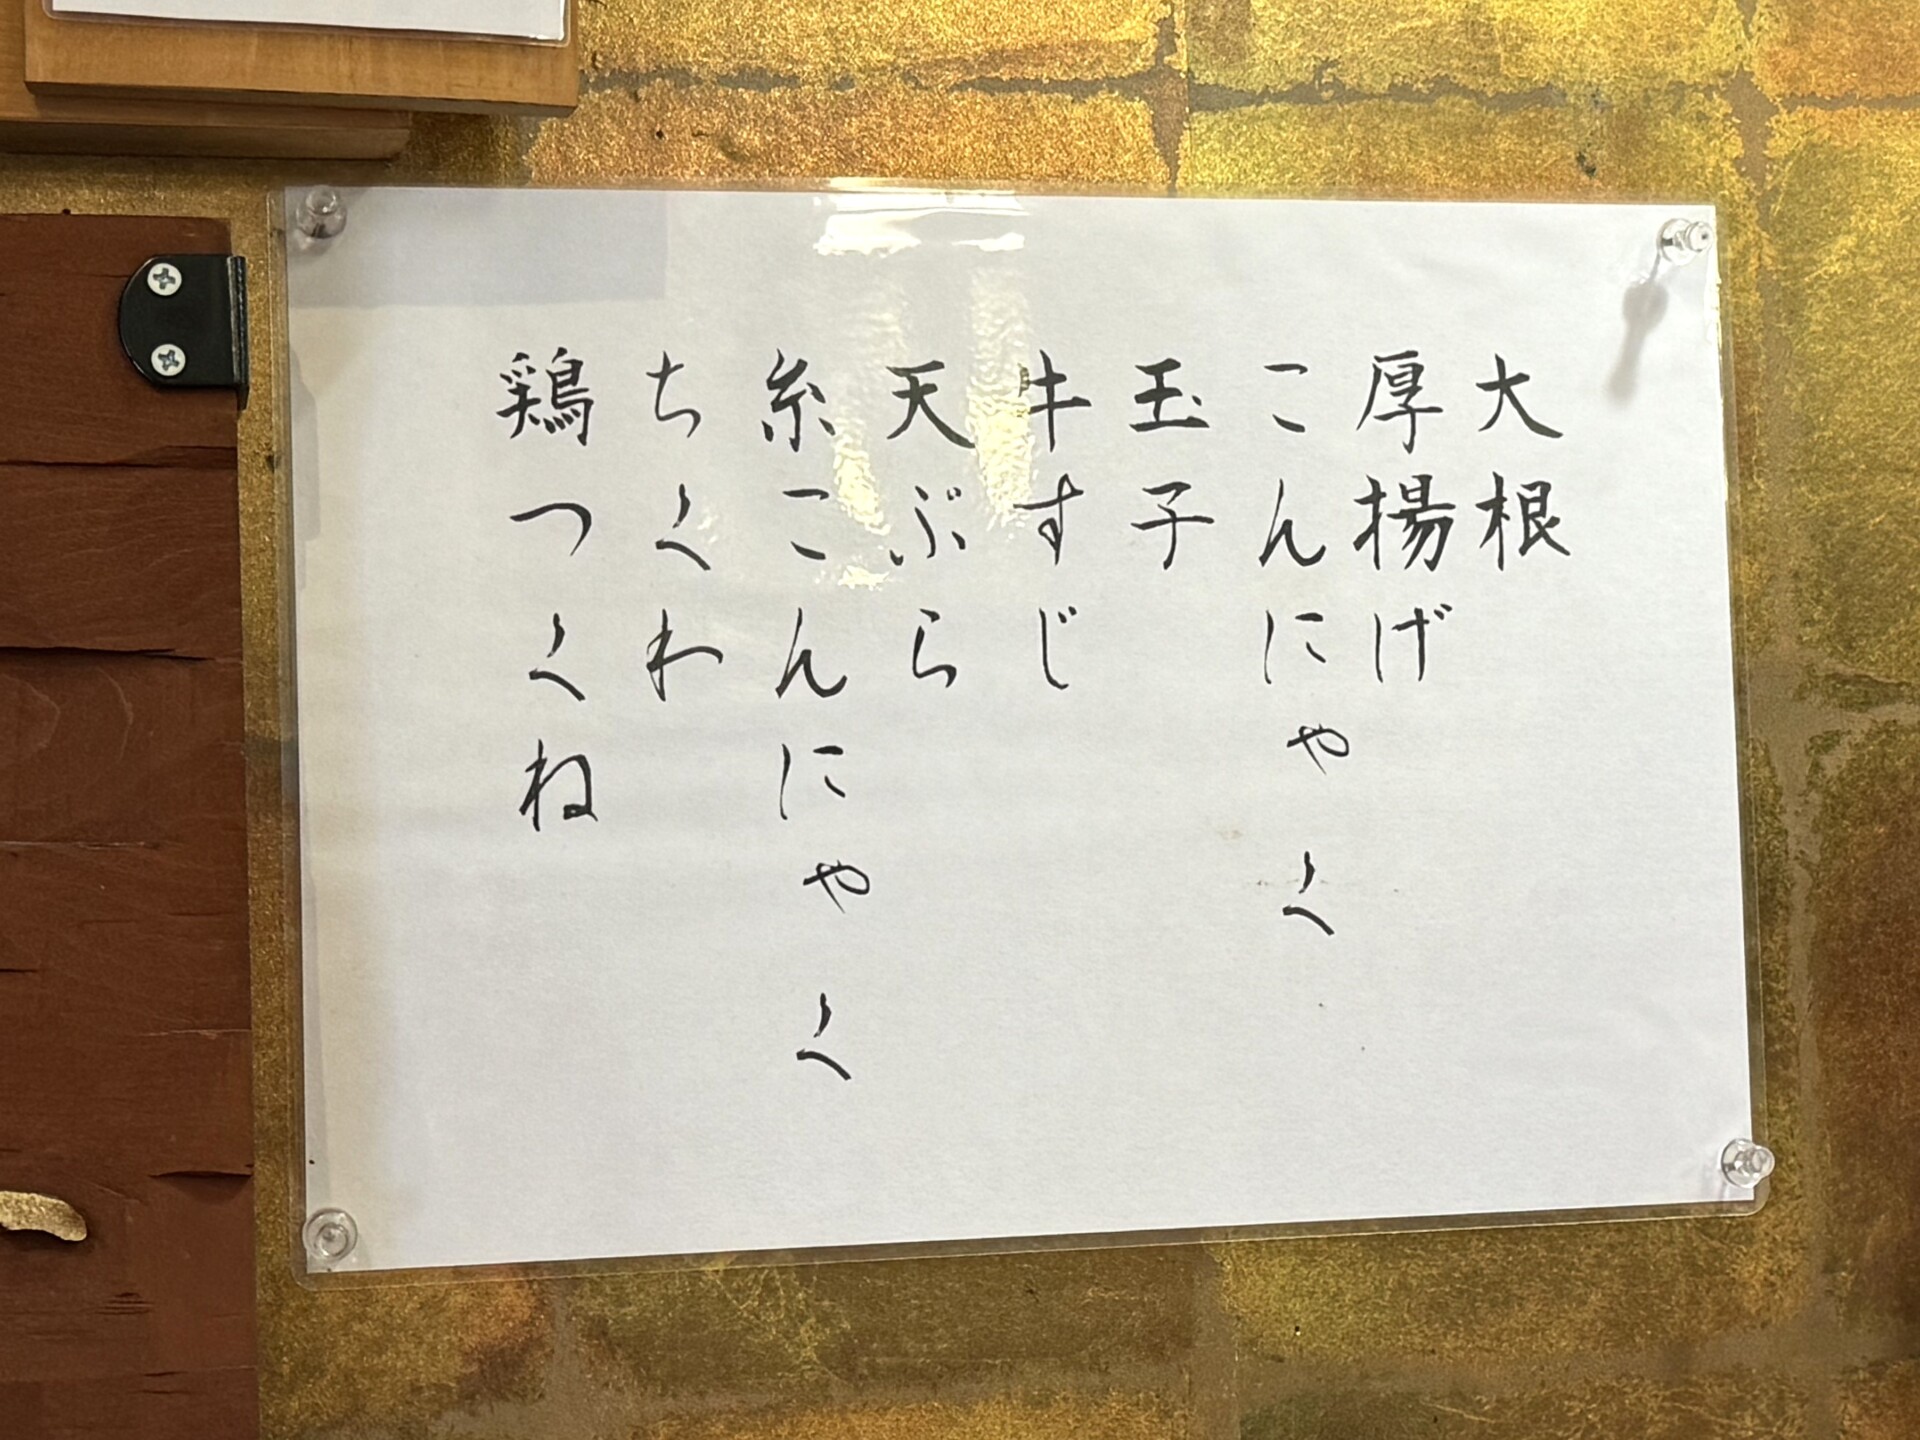 大根
厚揚げ
こんにゃく
玉子
牛すじ
天ぷら
糸こんにゃく
ちくわ
鶏つくね